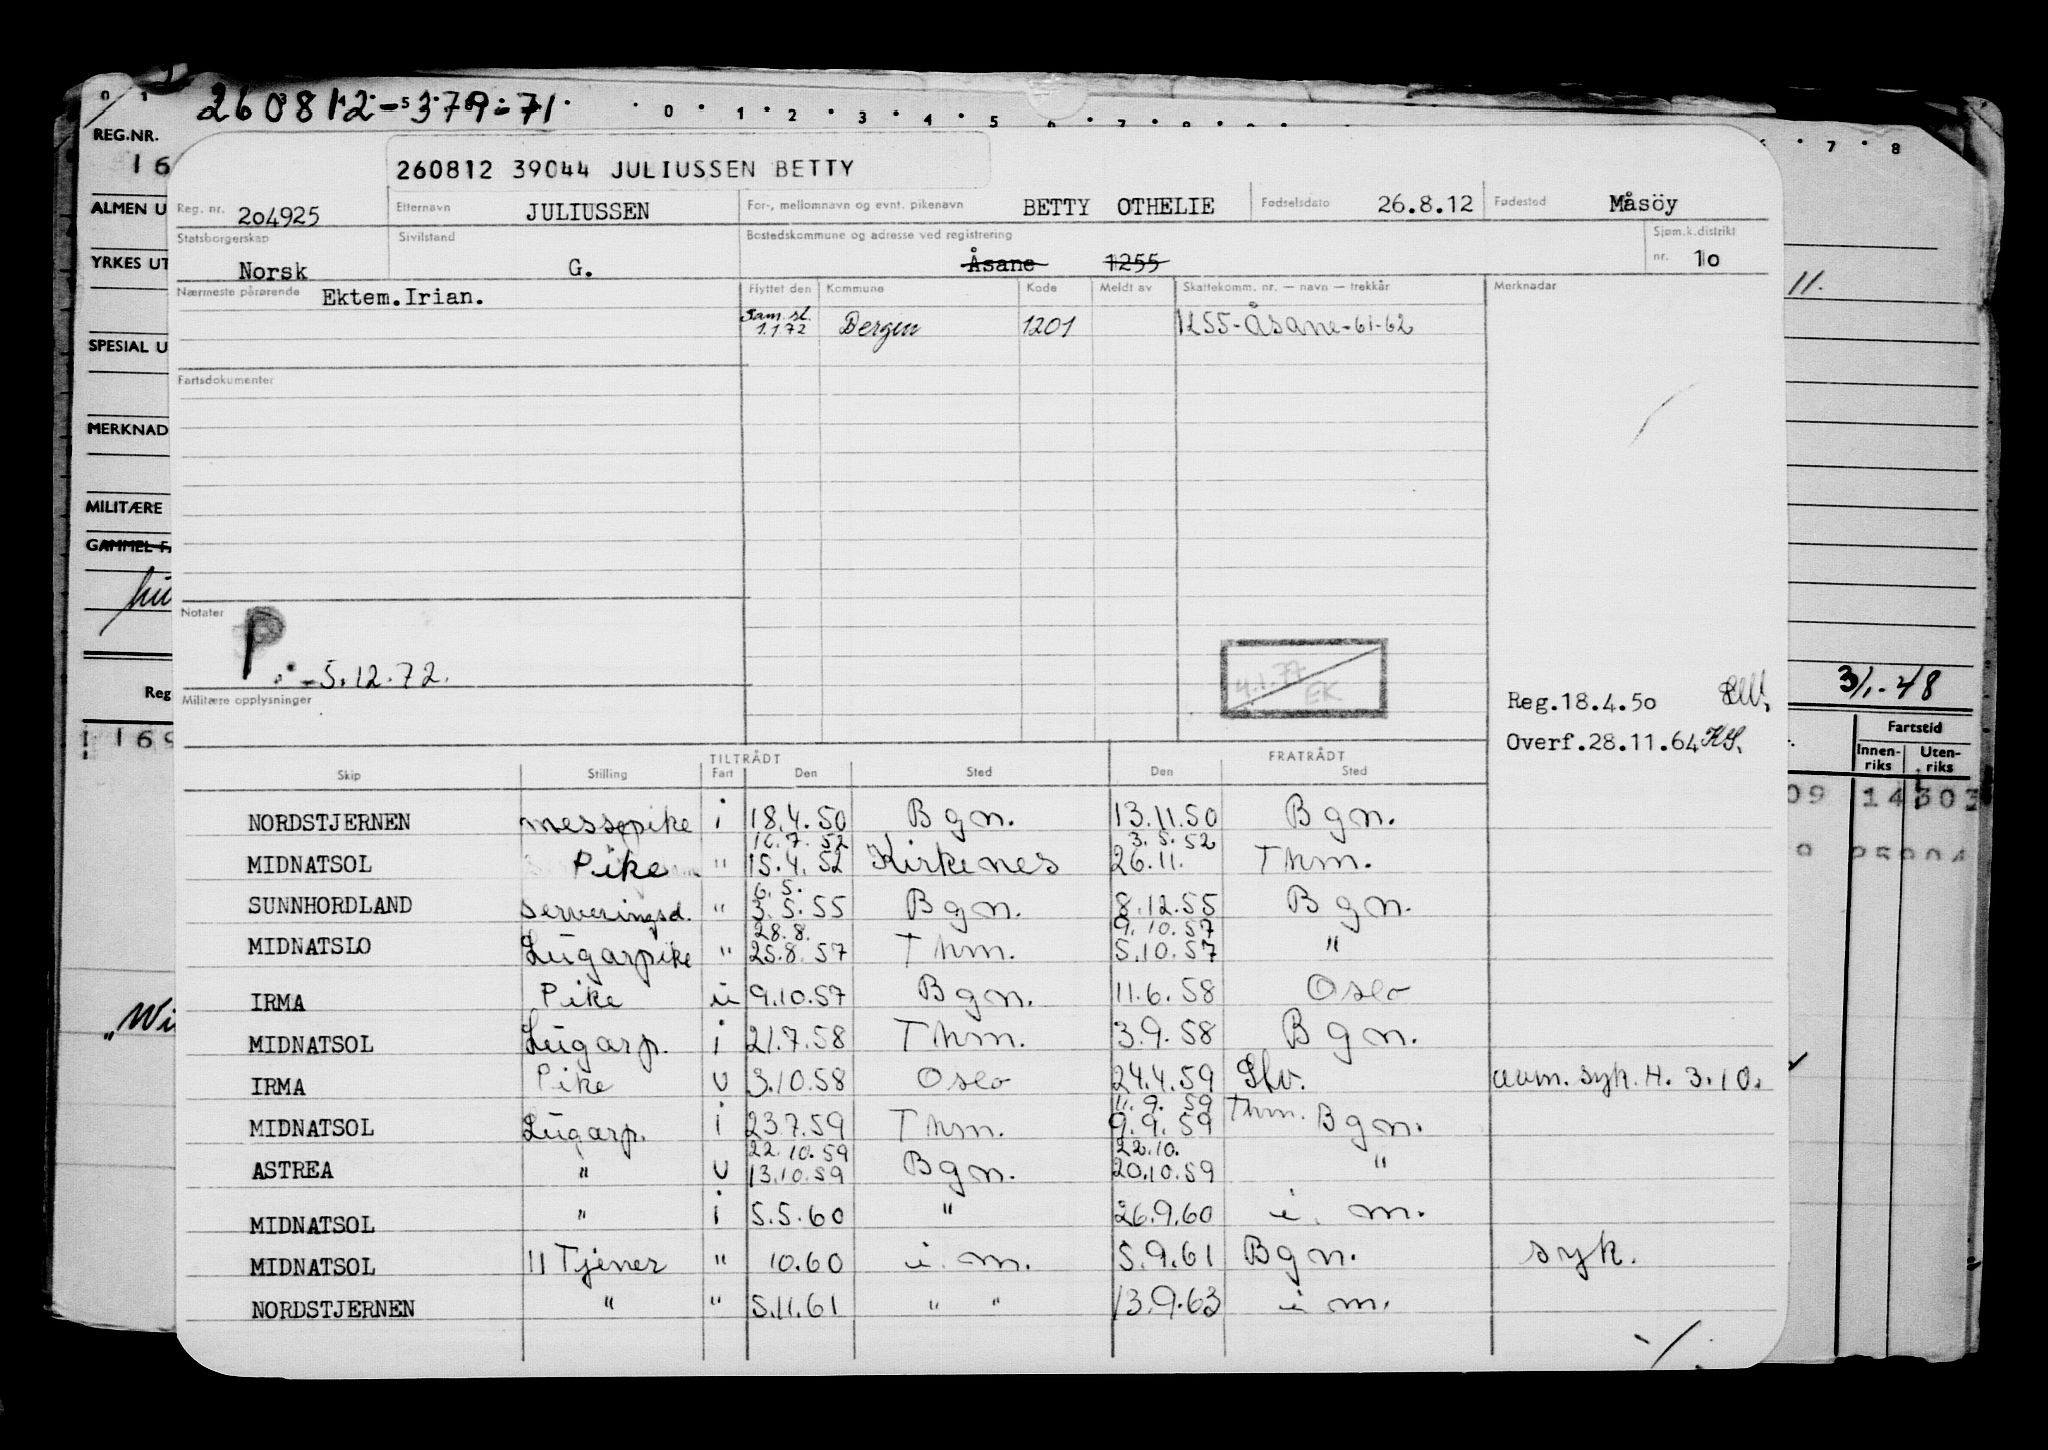 260812-379-71
0 1 5 0 1 2 3 4 5 6 7 8
7 8
REG.NR.
16
ALMEN U
YRKES UT
SPESIAL U
MERKNAD
MILITÆRE
GAMMEL F
Reg
169
"Wi
11.
31/1-48
Fartstid
Innen-
riks
Uten-
riks
09 14 303
9 25904
260812 39044 JULIUSSEN BETTY
Reg. nr. 204925 Etternavn JULIUSSEN For-, mellomnavn og evnt. pikenavn BETTY OTHELIE Fødselsdato 26.8.12 Fødested Måsöy
Statsborgerskap Norsk Sivilstand G. Bostedskommune og adresse ved registrering Åsane 1255 Sjøm.k.distrikt nr. 10
Nærmeste pårørende Ektem.Irian. Flyttet den Kommune Kode Meldt av Skattekomm. nr. — navn — trekkår Merknader
Sam.sl.
1.1 72 Bergen 1201 1255-Åsane-61-62
Fartsdokumenter
Notater
P
-5.12.72.
4.1.77
EK
Militære opplysninger
Reg.18.4.50
Overf.28.11.64 KS.
TILTRÅDT FRATRÅDT
Skip Stilling Fart Den Sted Den Sted
NORDSTJERNEN messepike i 18.4.50 Bgn. 13.11.50 Bgn.
16.7.52 3.5.52
MIDNATSOL Pike " 15.4.52 Kirkenes 26.11. Thm.
6.5.
SUNNHORDLAND serveringsd. " 3.5.55 Bgn. 8.12.55 Bgn.
28.8. 9.10.57
MIDNATSLO Lugarpike " 25.8.57 Thm. 5.10.57 "
IRMA Pike u 9.10.57 Bgn. 11.6.58 Oslo
MIDNATSOL Lugarp. i 21.7.58 Thm. 3.9.58 Bgn.
IRMA Pike u 3.10.58 Oslo 24.4.59 Slv. avm. syk. H. 3.10.
11.9.59 Thm.
MIDNATSOL Lugarp. i 23.7.59 Thm. 9.9.59 Bgn.
22.10.59 22.10.
ASTREA " u 13.10.59 Bgn. 20.10.59 "
MIDNATSOL " i 5.5.60 " 26.9.60 i. m.
MIDNATSOL 11 Tjener " 10.60 i. m. 5.9.61 Bgn. syk.
NORDSTJERNEN " " 5.11.61 " " 13.9.63 i m.